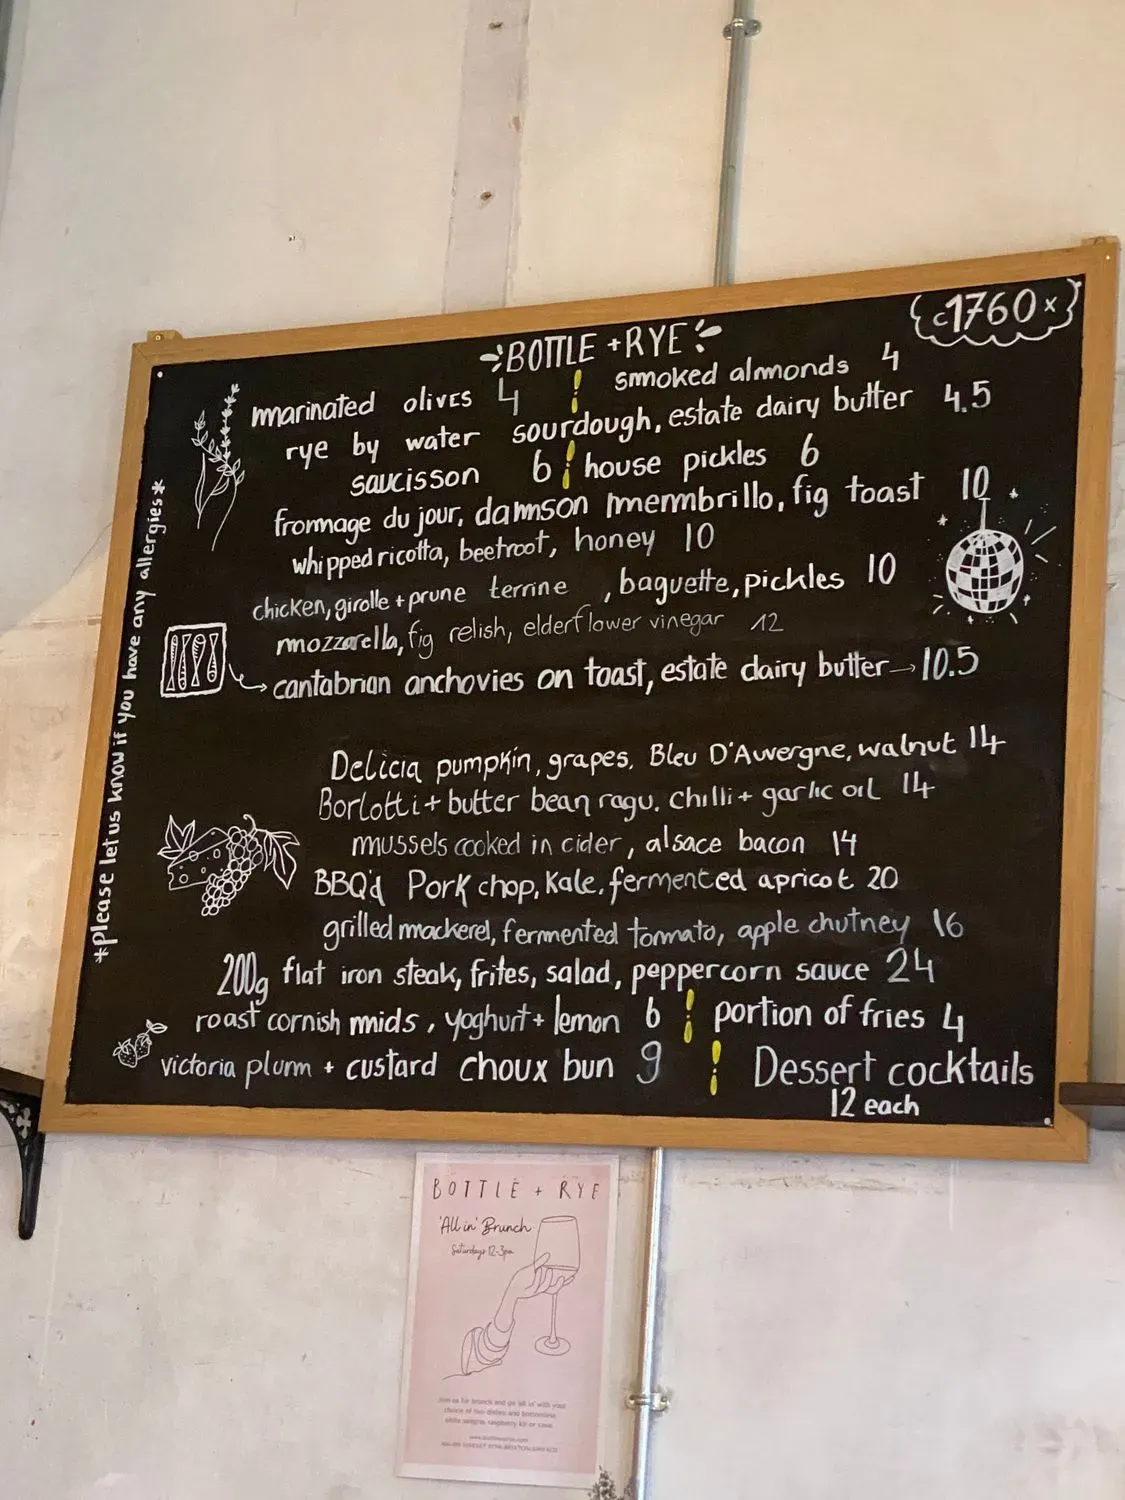 c1760x
BOTTLE + RYE
marinated olives 4 ! smoked almonds 4
rye by water sourdough, estate dairy butter 4.5
saucisson 6 ! house pickles 6
fromage du jour, damson membrillo, fig toast 10
whipped ricotta, beetroot, honey 10
chicken, girolle + prune terrine , baguette, pickles 10
mozzarella, fig relish, elderflower vinegar 12
cantabrian anchovies on toast, estate dairy butter → 10.5
*please let us know if you have any allergies*
Delicia pumpkin, grapes, Bleu D'Auvergne, walnut 14
Borlotti + butter bean ragu. chilli + garlic oil 14
mussels cooked in cider, alsace bacon 14
BBQ'd Pork chop, Kale, fermented apricot 20
grilled mackerel, fermented tomato, apple chutney 16
200g flat iron steak, frites, salad, peppercorn sauce 24
roast cornish mids, yoghurt + lemon 6 ! portion of fries 4
victoria plum + custard choux bun 9 ! Dessert cocktails
12 each
BOTTLE + RYE
'All in' Brunch
Saturdays 12-3pm
Join us for brunch and go 'all in' with your
choice of two dishes and bottomless